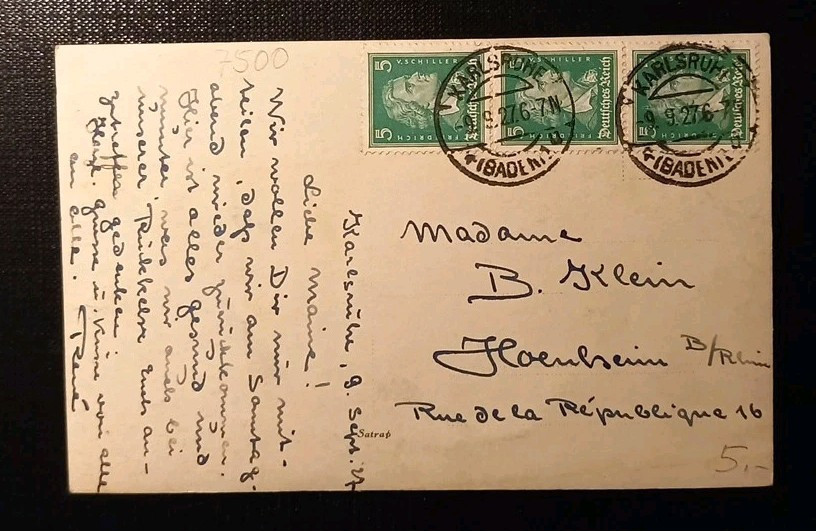 7500
Karlsruhe, 9. Sept. 27
Liebe Mama!
Wir wollen Dir nur mit-
teilen, daß wir am Samstag-
abend wieder zurückkommen.
Hier ist alles gesund und
munter, was wir auch bei
unserer Rückkehr Euch an-
zutreffen gedenken.
Herzl. Grüsse u. Küsse von alle
an alle. René
5 V. SCHILLER
5 FRIEDRICH
Deutsches Reich
5 V. SCHILLER
5 FRIEDRICH
Deutsches Reich
5
Deutsches Reich
KARLSRUHE
9.9.27.6-7N
(BADEN) 1
KARLSRUHE
9.9.27.6
(BADEN) 1
Madame
B. Klein
Hoenheim B/Rhin
Rue de la République 16
Satrap
5,-